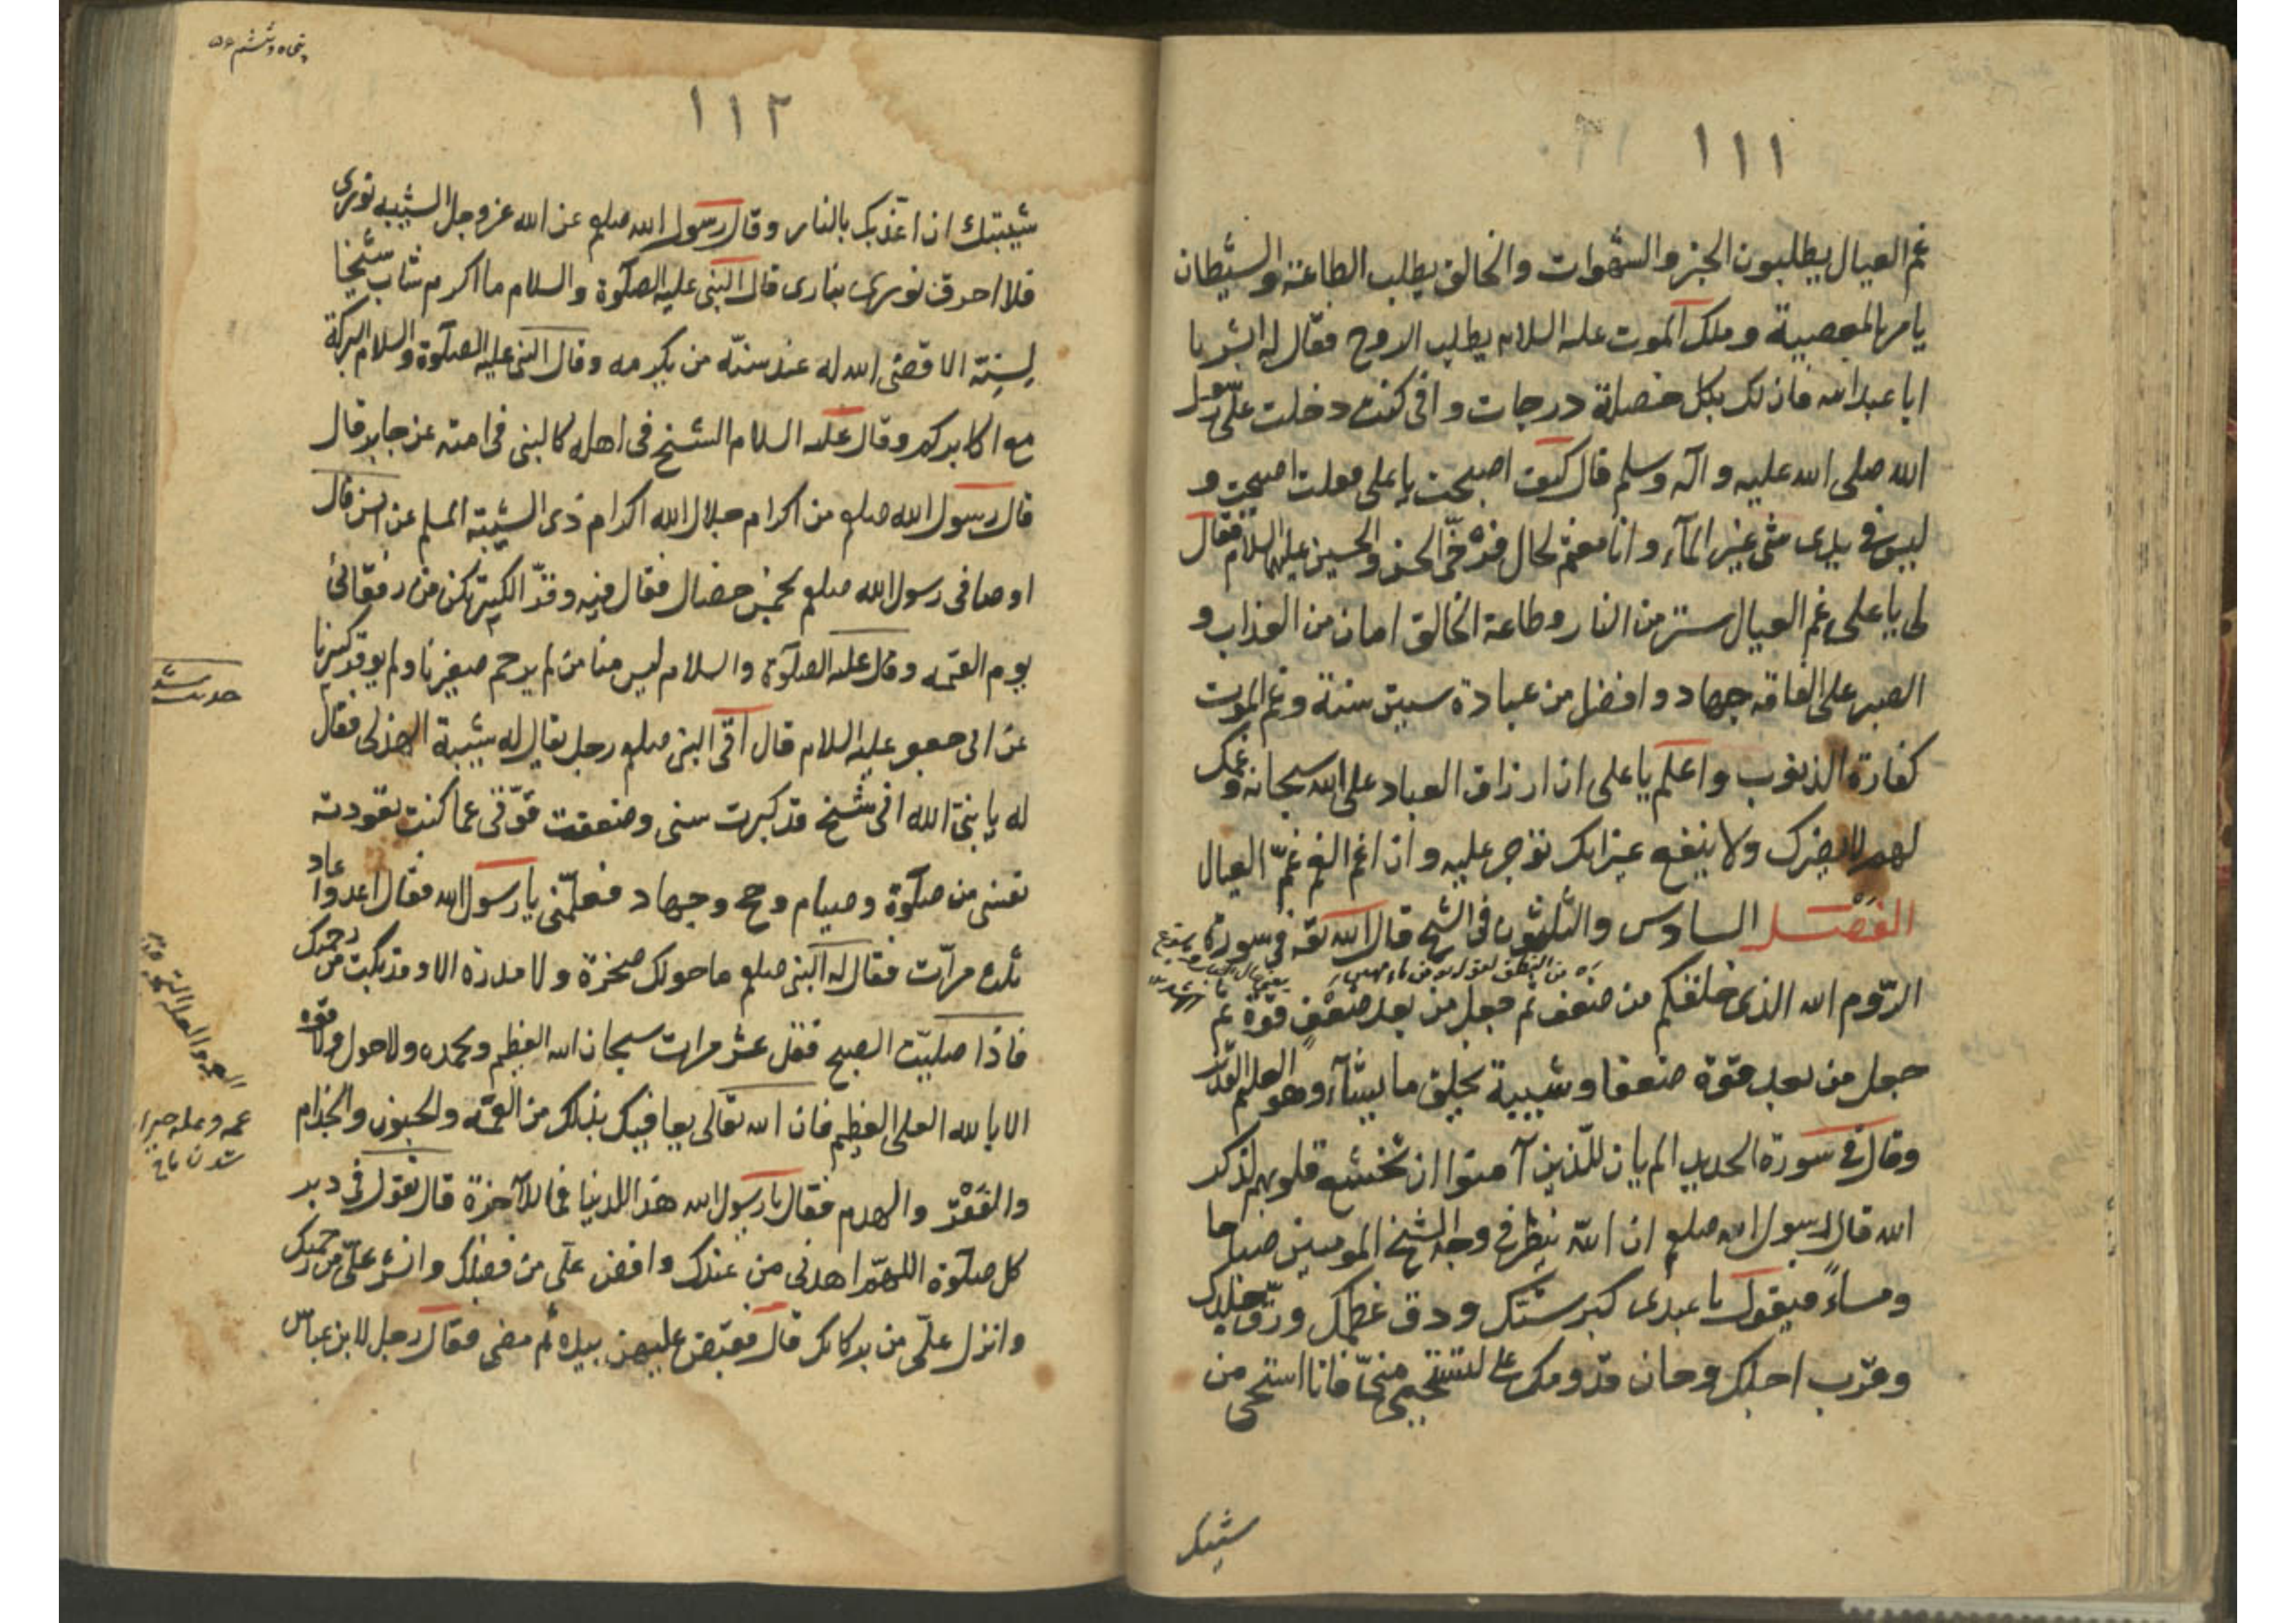 ١١١
غم العيال يطلبون الخبز والشهوات والخالق يطلب الطاعة والشيطان
يامر بالمعصية وملك الموت عليه السلام يطلب الروح فقال له ابشر يا
ابا عبدالله فان لك بكل خصلة درجات وانى كنت دخلت على رسول
الله صلى الله عليه وآله وسلم قال كيف اصبحت يا على فقلت اصبحت و
ليس فى يدى شئ غير المآء وانا مغتم لحال فرخى الحسن والحسين عليهما السلام فقال
لى يا على غم العيال ستر من النار وطاعة الخالق امان من العذاب و
الصبر على الفاقة جهاد وافضل من عبادة ستين سنة وغم الموت
كفارة الذنوب واعلم يا على ان ارزاق العباد على الله سبحانه وغمك
لهم لا يضرك ولا ينفع غير انك توجر عليه وان اغم الغم غمّ العيال
الفصل السادس والثلثون فى الشيخ قال الله تعه فى سورة
الرّوم الله الذى خلقكم من ضعف ثم جعل من بعد ضعْفٍ قوّة ثم
جعل من بعد قوّة ضعفا وشيبة يخلق ما يشآء وهو العليم القدير
وقال فى سورة الحديد الم يان للّذين آمنوا ان تخشع قلوبهم لذكر
الله قال رسول الله صلعم ان اللّه ينظر فى وجه الشيخ المومنين صباحا
ومساءً فيقول يا عبدى كبر سنّك ودق عظمك ورقّ جلدك
وقرب اجلك وحان قدومك على فانا استحى من
شيبتك
پنجاه وششم ٥٦
١١٢
شيبتك ان اعذبك بالنار وقال رسول الله صلعم عن الله عز وجل الشيبه نورى
فلا احرق نورى بنارى قال النبى عليه الصلوة والسلام ما اكرم شاب شيخا
لِسِنّه الا قضى الله له عند سنّه من يكرمه وقال النبى عليه الصلوة والسلام البركة
مع اكابركم وقال عليه السلام الشيخ فى اهله كالنبى فى امته عن جابر قال
قال رسول الله صلعم من اكرام جلال الله اكرام ذى الشيبة المسلم عن انس قال
اوصانى رسول الله صلعم بخمس خصال فقال فيه وقّر الكبير تكن من رفقائى
يوم القيمه وقال عليه الصلوة والسلام ليس منا من لم يرحم صغيرنا ولم يوقر كبيرنا
عن ابى جعفر عليه السلام قال اتى النبى صلعم رجل يقال له شيبة الهذلى فقال
له يا نبىّ الله انى شيخ قد كبرت سنى وضعفت قوّتى عما كنت تعودته
نفسى من صلوة وصيام وحج وجهاد فعلّمنى يا رسول الله فقال اعد واعاد
ثلاث مرّات فقال له النبى صلعم ما حولك صخرة ولا مدرة الا وقد بكت من رحمتك
فاذا صلّيت الصبح فقل عشر مرات سبحان الله العظيم وبحمده ولا حول ولا قوة
الا بالله العلى العظيم فان الله تعالى يعافيك بذلك من العمى والجنون والجذام
والفَقْر والهرم فقال يا رسول الله هذا للدنيا فما للآخرة قال تقول فى دبر
كل صلوة اللهمّ اهدنى من عندك وافض علّى من فضلك وانشر علّى من رحمتك
وانزل علّى من بركاتك قال فقبض عليهن بيده ثم مضى فقال رجل لابن عباس